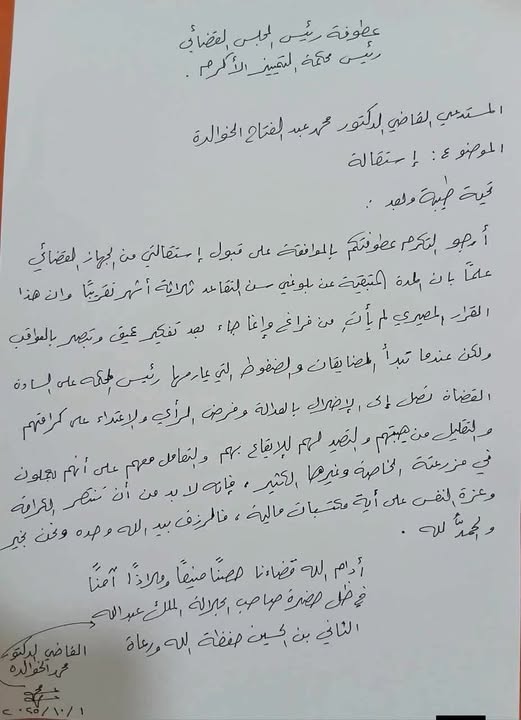 عطوفة رئيس المجلس القضائي
رئيس محكمة التمييز الأكرم .
المستدعي القاضي الدكتور محمد عبد الفتاح الخوالدة
الموضوع : إستقالة
تحية طيبة وبعد :
أرجو التكرم عطوفتكم بالموافقة على قبول إستقالتي من الجهاز القضائي
علماً بان المدة المتبقية عن بلوغي سن التقاعد ثلاثة أشهر تقريباً وان هذا
القرار المصيري لم يأت من فراغ وإنما جاء بعد تفكير عميق وتبصر بالعواقب
ولكن عندما تبدأ المضايقات والضغوط التي يمارسها رئيس المحكمة على السادة
القضاة تصل إلى الإخلال بالعدالة وفرض الرأي والاعتداء على كرامتهم
والتقليل من هيبتهم والتصيد لهم للإيقاع بهم والتعامل معهم على أنهم يعملون
في مزرعته الخاصة وغيرها الكثير ، فإنه لا بد من أن تنتصر الكرامة
وعزة النفس على أية مكتسبات مالية ، فالرزق بيد الله وحده ونحن بخير
والحمد لله .
أدام الله قضاءنا حصناً منيعاً وملاذاً آمناً
في ظل حضرة صاحب الجلالة الملك عبدالله
الثاني بن الحسين حفظة الله ورعاة
القاضي الدكتور
محمد الخوالده
٢٠٢٥/١٠/١